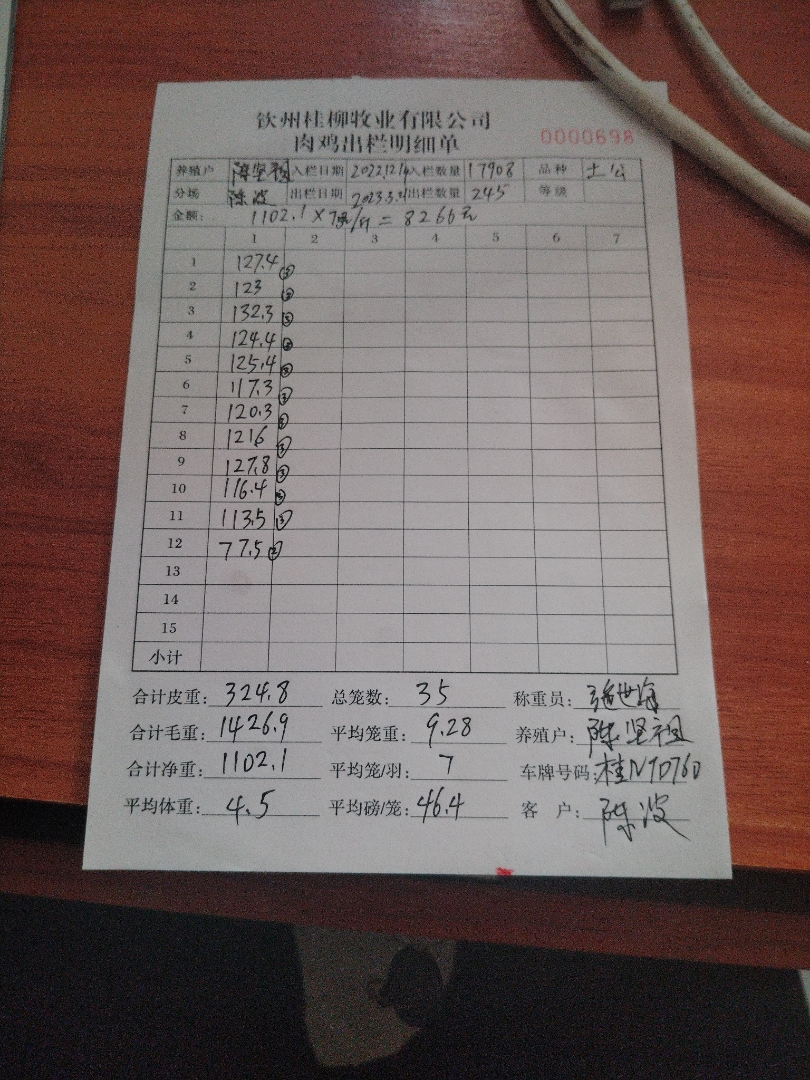 钦州桂柳牧业有限公司
肉鸡出栏明细单
0000698
养殖户 陈坚祖 入栏日期 2022.12.14 入栏数量 17908 品种 土公
分场 陈波 出栏日期 2023.3.31 出栏数量 245 等级
金额: 1102.1 × 元/斤 = 8266元
1 2 3 4 5 6 7
1 127.4 ③
2 123
3 132.3 ③
4 124.4
5 125.4 ③
6 117.3 ③
7 120.3 ③
8 121.6 ③
9 127.8 ③
10 116.4 ③
11 113.5 ③
12 77.5 ②
13
14
15
小计
合计皮重: 324.8 总笼数: 35 称重员:
合计毛重: 1426.9 平均笼重: 9.28 养殖户: 陈坚祖
合计净重: 1102.1 平均笼/羽: 7 车牌号码: 桂N7D760
平均体重: 4.5 平均磅/笼: 46.4 客 户: 陈波